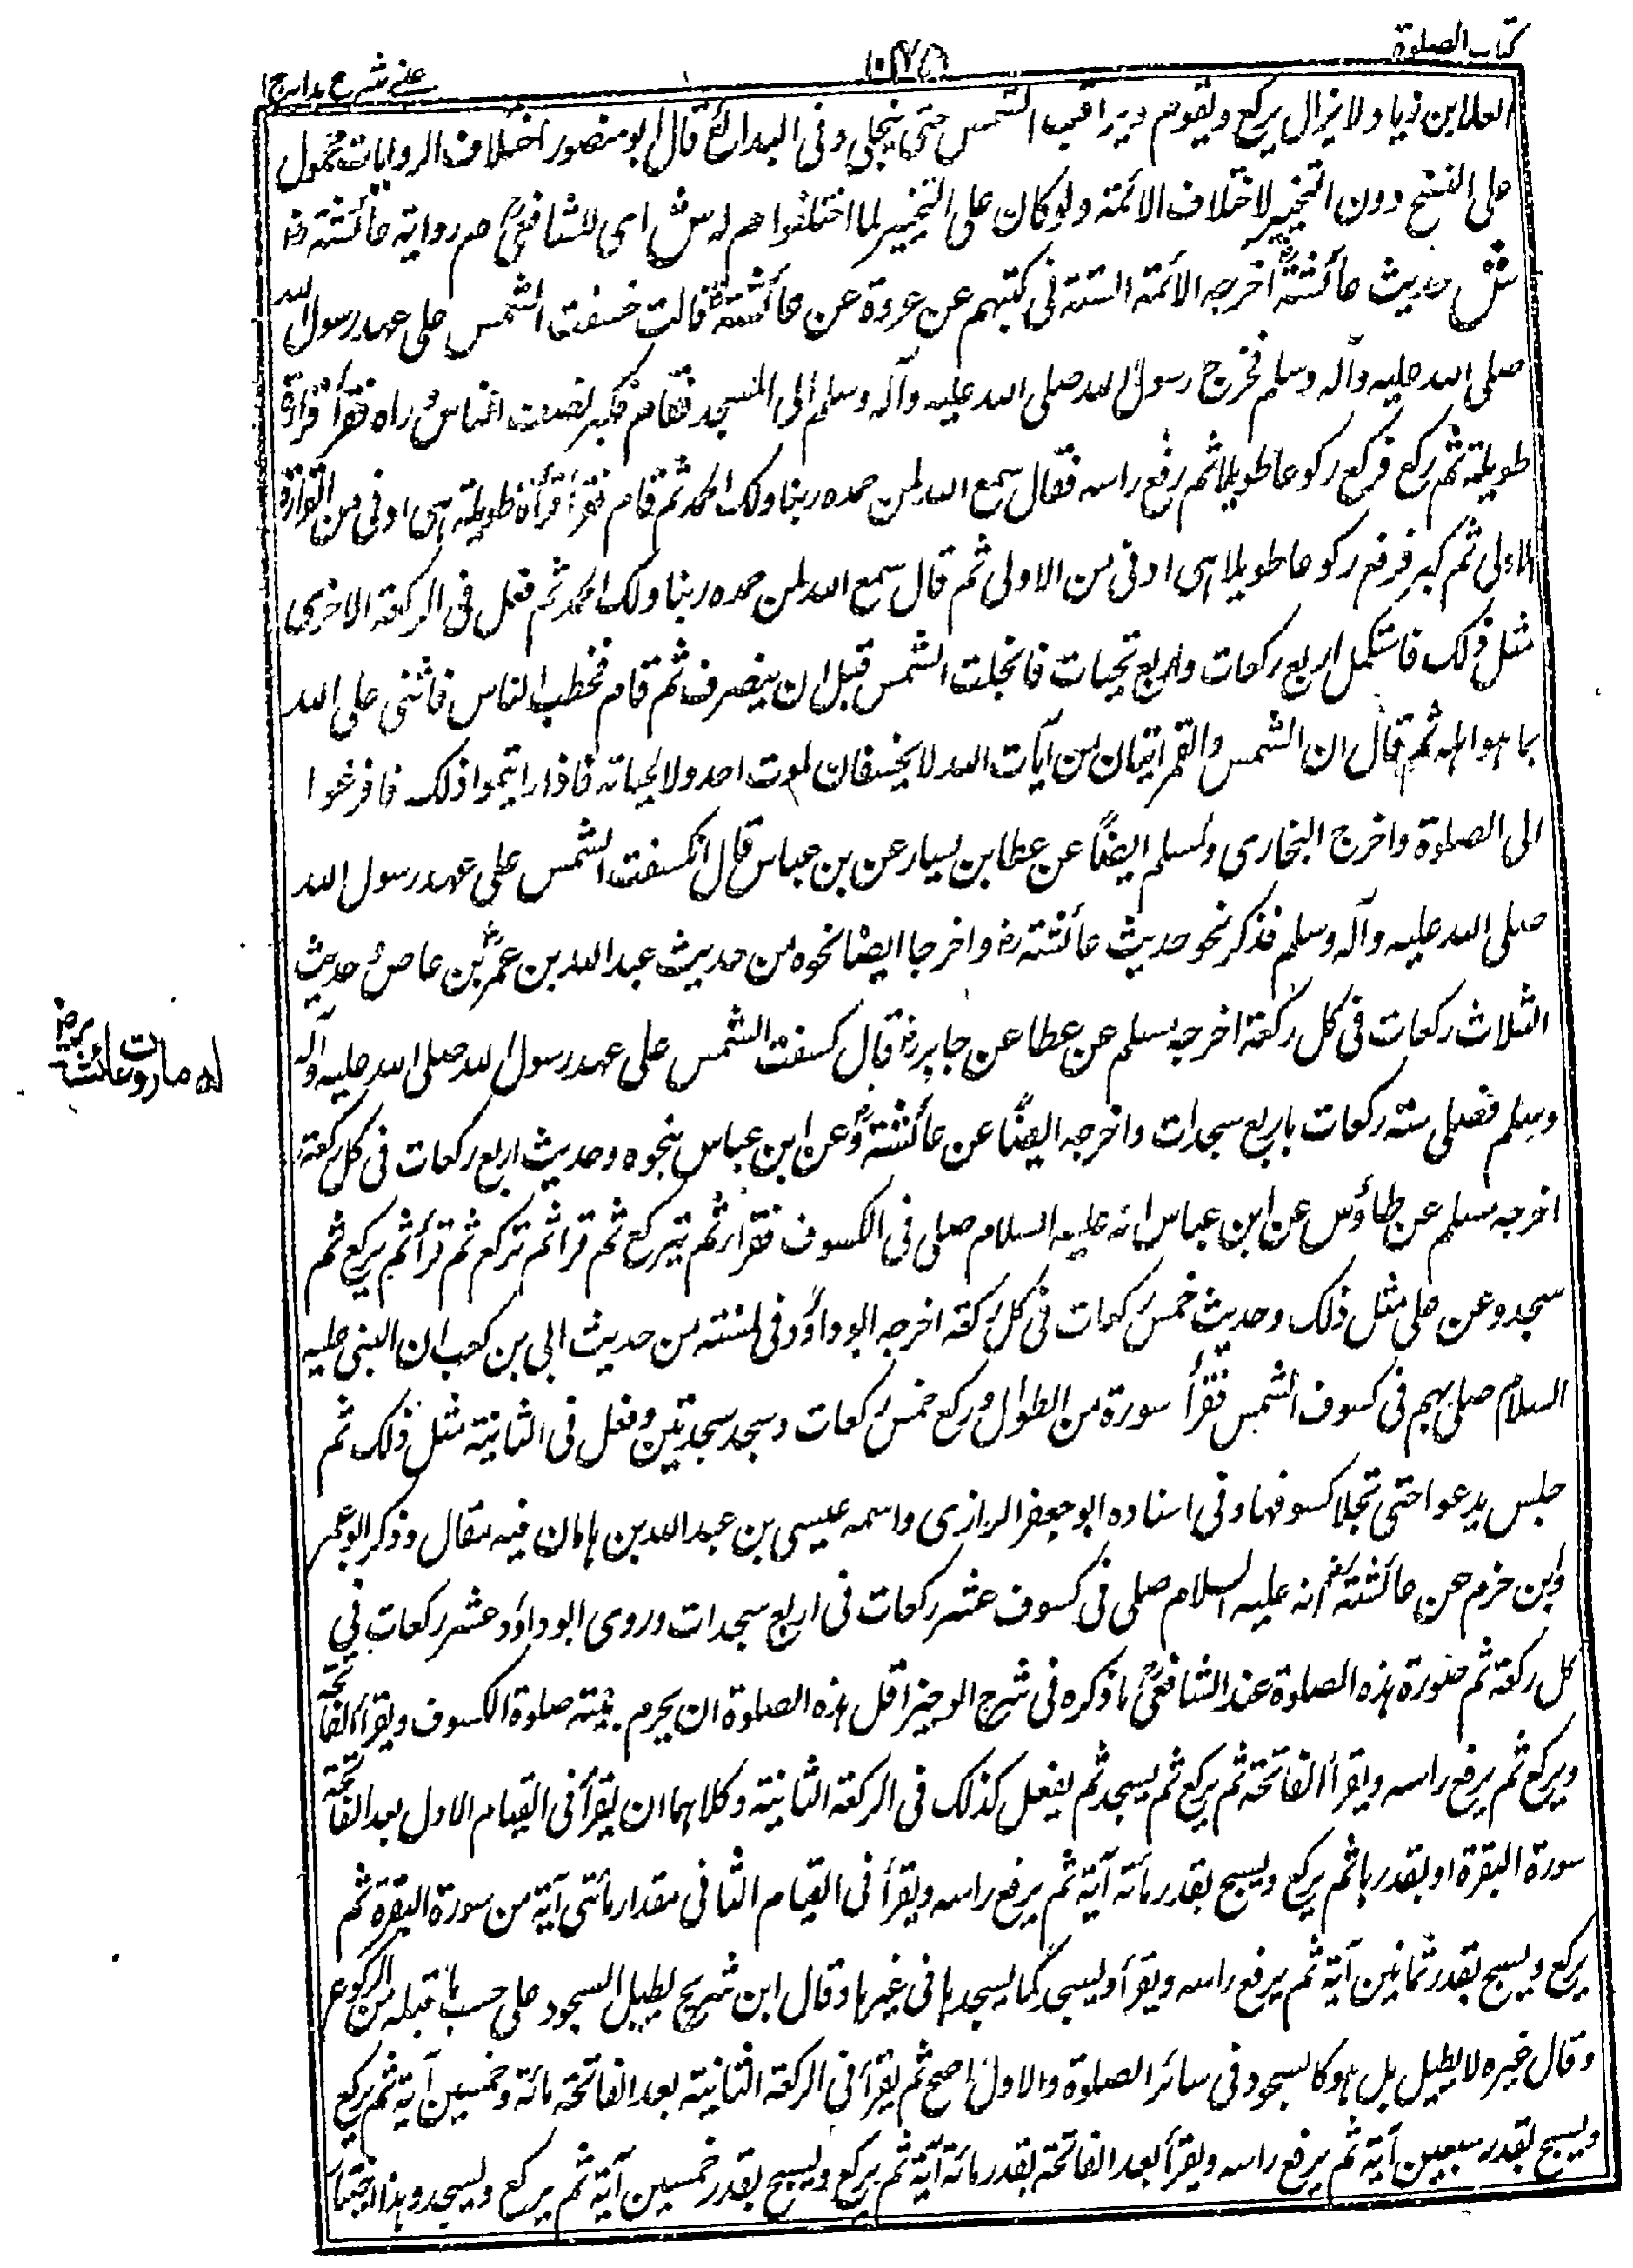 كتاب الصلوة
١٠٢٧٥
عينى شرح هداية ج ١
العلا ابن زياد ولا يزال يركع ويقوم ويراقب الشمس حتى ينجلى وفى البدائع قال ابو منصور اختلاف الروايات محمول
على النسخ دون التخيير لاختلاف الائمة ولو كان على التخيير لما اختلفوا هم له ش اى للشافعىؒ هم رواية عائشة رض
ش حديث عائشةؓ اخرجه الأئمة الستة فى كتبهم عن عروة عن عائشةؓ قالت خسفت الشمس على عهد رسول الله
صلى الله عليه وآله وسلم فخرج رسول الله صلى الله عليه وآله وسلم الى المسجد فقام فكبر فصفت الناس وراه فقرأ قراءة
طويلة ثم ركع فركع ركوعا طويلا ثم رفع راسه فقال سمع الله لمن حمده ربنا ولك الحمد ثم قام فقرأ قرأة طويلة هى ادنى من القرأة
الاولى ثم كبر فرفع ركوعا طويلا هى ادنى من الاولى ثم قال سمع الله لمن حمده ربنا ولك الحمد ثم فعل فى الركعة الاخرى
مثل ذلك فاستكمل اربع ركعات واربع تحيات فانجلت الشمس قبل ان ينصرف ثم قام فخطب الناس فاثنى على الله
بما هو اهله ثم قال ان الشمس والقمر آيتان من آيات الله لا يخسفان لموت احد ولا لحياته فاذا رايتموا ذلك فافرغوا
الى الصلوة واخرج البخارى ومسلم ايضًا عن عطا بن يسار عن بن عباس قال انكسفت الشمس على عهد رسول الله
صلى الله عليه وآله وسلم فذكر نحو حديث عائشة رض واخرجا ايضًا نحوه من حديث عبد الله بن عمرو بن عاص وحديث
الثلاث ركعات فى كل ركعة اخرجه مسلم عن عطا عن جابر رض قال كسفت الشمس على عهد رسول الله صلى الله عليه وآله
له مارو ت عائشة رض
وسلم فصلى ستة ركعات باربع سجدات واخرجه ايضًا عن عائشةؓ وعن ابن عباس بنحوه وحديث اربع ركعات فى كل ركعة
اخرجه مسلم عن طاؤس عن ابن عباس انه عليه السلام صلى فى الكسوف فقرأ ثم يركع ثم قرأ ثم يركع ثم قرأ ثم يركع ثم
سجد وعن على مثل ذلك وحديث خمس ركعات فى كل ركعة اخرجه ابو داؤد فى سننه من حديث ابى بن كعب ان النبى عليه
السلام صلى بهم فى كسوف الشمس فقرأ سورة من الطوال وركع خمس ركعات وسجد سجدتين وفعل فى الثانية مثل ذلك ثم
جلس يدعوا حتى تجلا كسوفها وفى اسناده ابو جعفر الرازى واسمه عيسى بن عبد الله بن ماهان فيه مقال وذكر ابو عمر
وابن حزم عن عائشةؓ انه عليه السلام صلى فى كسوف عشر ركعات فى اربع سجدات وروى ابو داؤد عشر ركعات فى
كل ركعة ثم صورة هذه الصلوة عند الشافعىؒ ما ذكره فى شرح الوجيز اقل هذه الصلوة ان يحرم بنية صلوة الكسوف ويقرأ الفاتحة
ويركع ثم يرفع راسه ويقرأ الفاتحة ثم يركع ثم يسجد ثم يفعل كذلك فى الركعة الثانية وكلاهما ان يقرأ فى القيام الاول بعد الفاتحة
سورة البقرة او بقدرها ثم يركع ويسبح بقدر مائة آية ثم يرفع راسه ويقرأ فى القيام الثانى مقدار مائتى آية من سورة البقرة ثم
يركع ويسبح بقدر ثمانين آية ثم يرفع راسه ويقرأ ويسجد كما يسجدها فى غيرها وقال ابن شريح يطيل السجود على حسب ما قبله من الركوع
وقال غيره لا يطيل بل هو كالسجود فى سائر الصلوة والاول اصح ثم يقرأ فى الركعة الثانية بعد الفاتحة مائة وخمسين آية ثم يركع
ويسبح بقدر سبعين آية ثم يرفع راسه ويقرأ بعد الفاتحة بقدر مائة آية ثم يركع ويسبح بقدر خمسين آية ثم يركع ويسجد وهذا